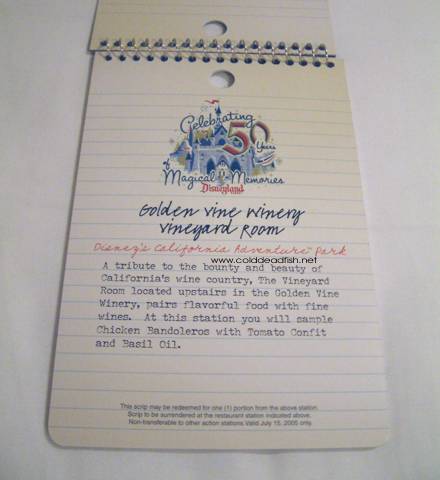 Celebrating
50 Years
of
Magical Memories
Disneyland
Golden Vine Winery
Vineyard Room
Disney's California Adventure™ Park
www.colddeadfish.net
A tribute to the bounty and beauty of
California's wine country, The Vineyard
Room located upstairs in the Golden Vine
Winery, pairs flavorful food with fine
wines. At this station you will sample
Chicken Bandoleros with Tomato Confit
and Basil Oil.
This scrip may be redeemed for one (1) portion from the above station.
Scrip to be surrendered at the restaurant station indicated above.
Non-transferable to other action stations. Valid July 15, 2005 only.